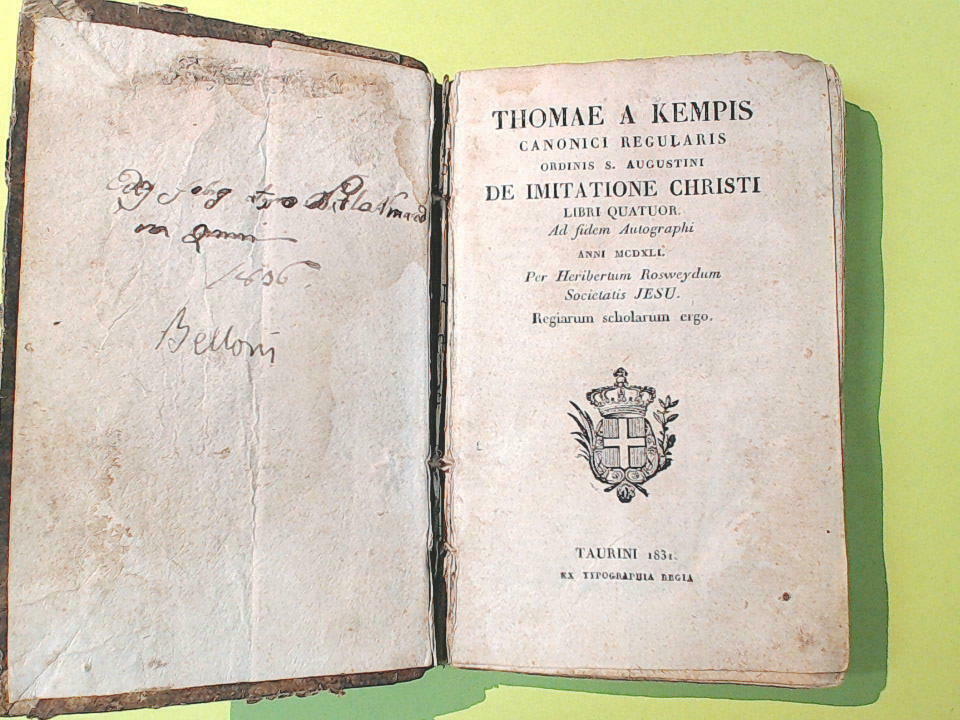 1836
Belloni
THOMAE A KEMPIS
CANONICI REGULARIS
ORDINIS S. AUGUSTINI
DE IMITATIONE CHRISTI
LIBRI QUATUOR.
Ad fidem Autographi
ANNI MCDXLI.
Per Heribertum Rosweydum
Societatis JESU.
Regiarum scholarum ergo.
TAURINI 1831.
EX TYPOGRAPHIA REGIA